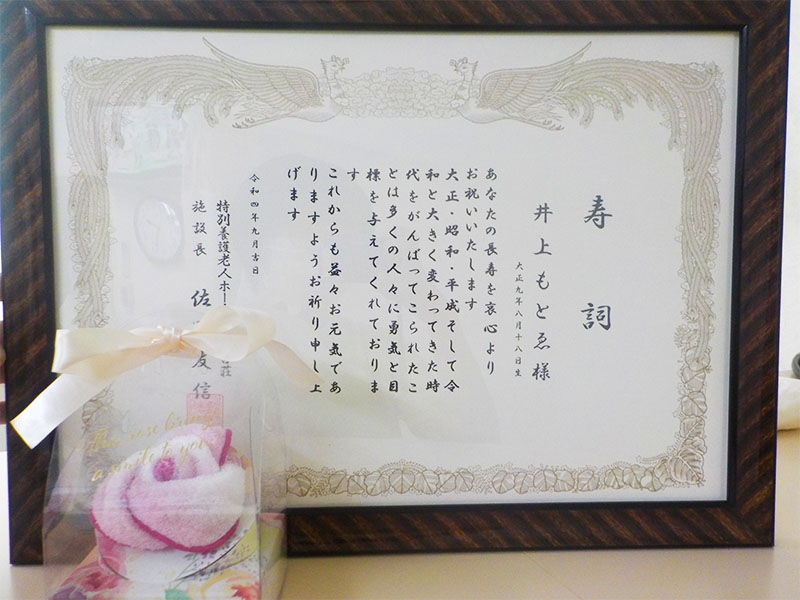 寿詞
井上もとゑ様
大正九年八月十八日生
あなたの長寿を衷心より
お祝いいたします
大正・昭和・平成そして令
和と大きく変わってきた時
代をがんばってこられたこ
とは多くの人々に勇気と目
標を与えてくれておりま
す
これからも益々お元気であ
りますようお祈り申し上
げます
令和四年九月吉日
特別養護老人ホー 荘
施設長 佐 友信
This rose brings
a smile to you